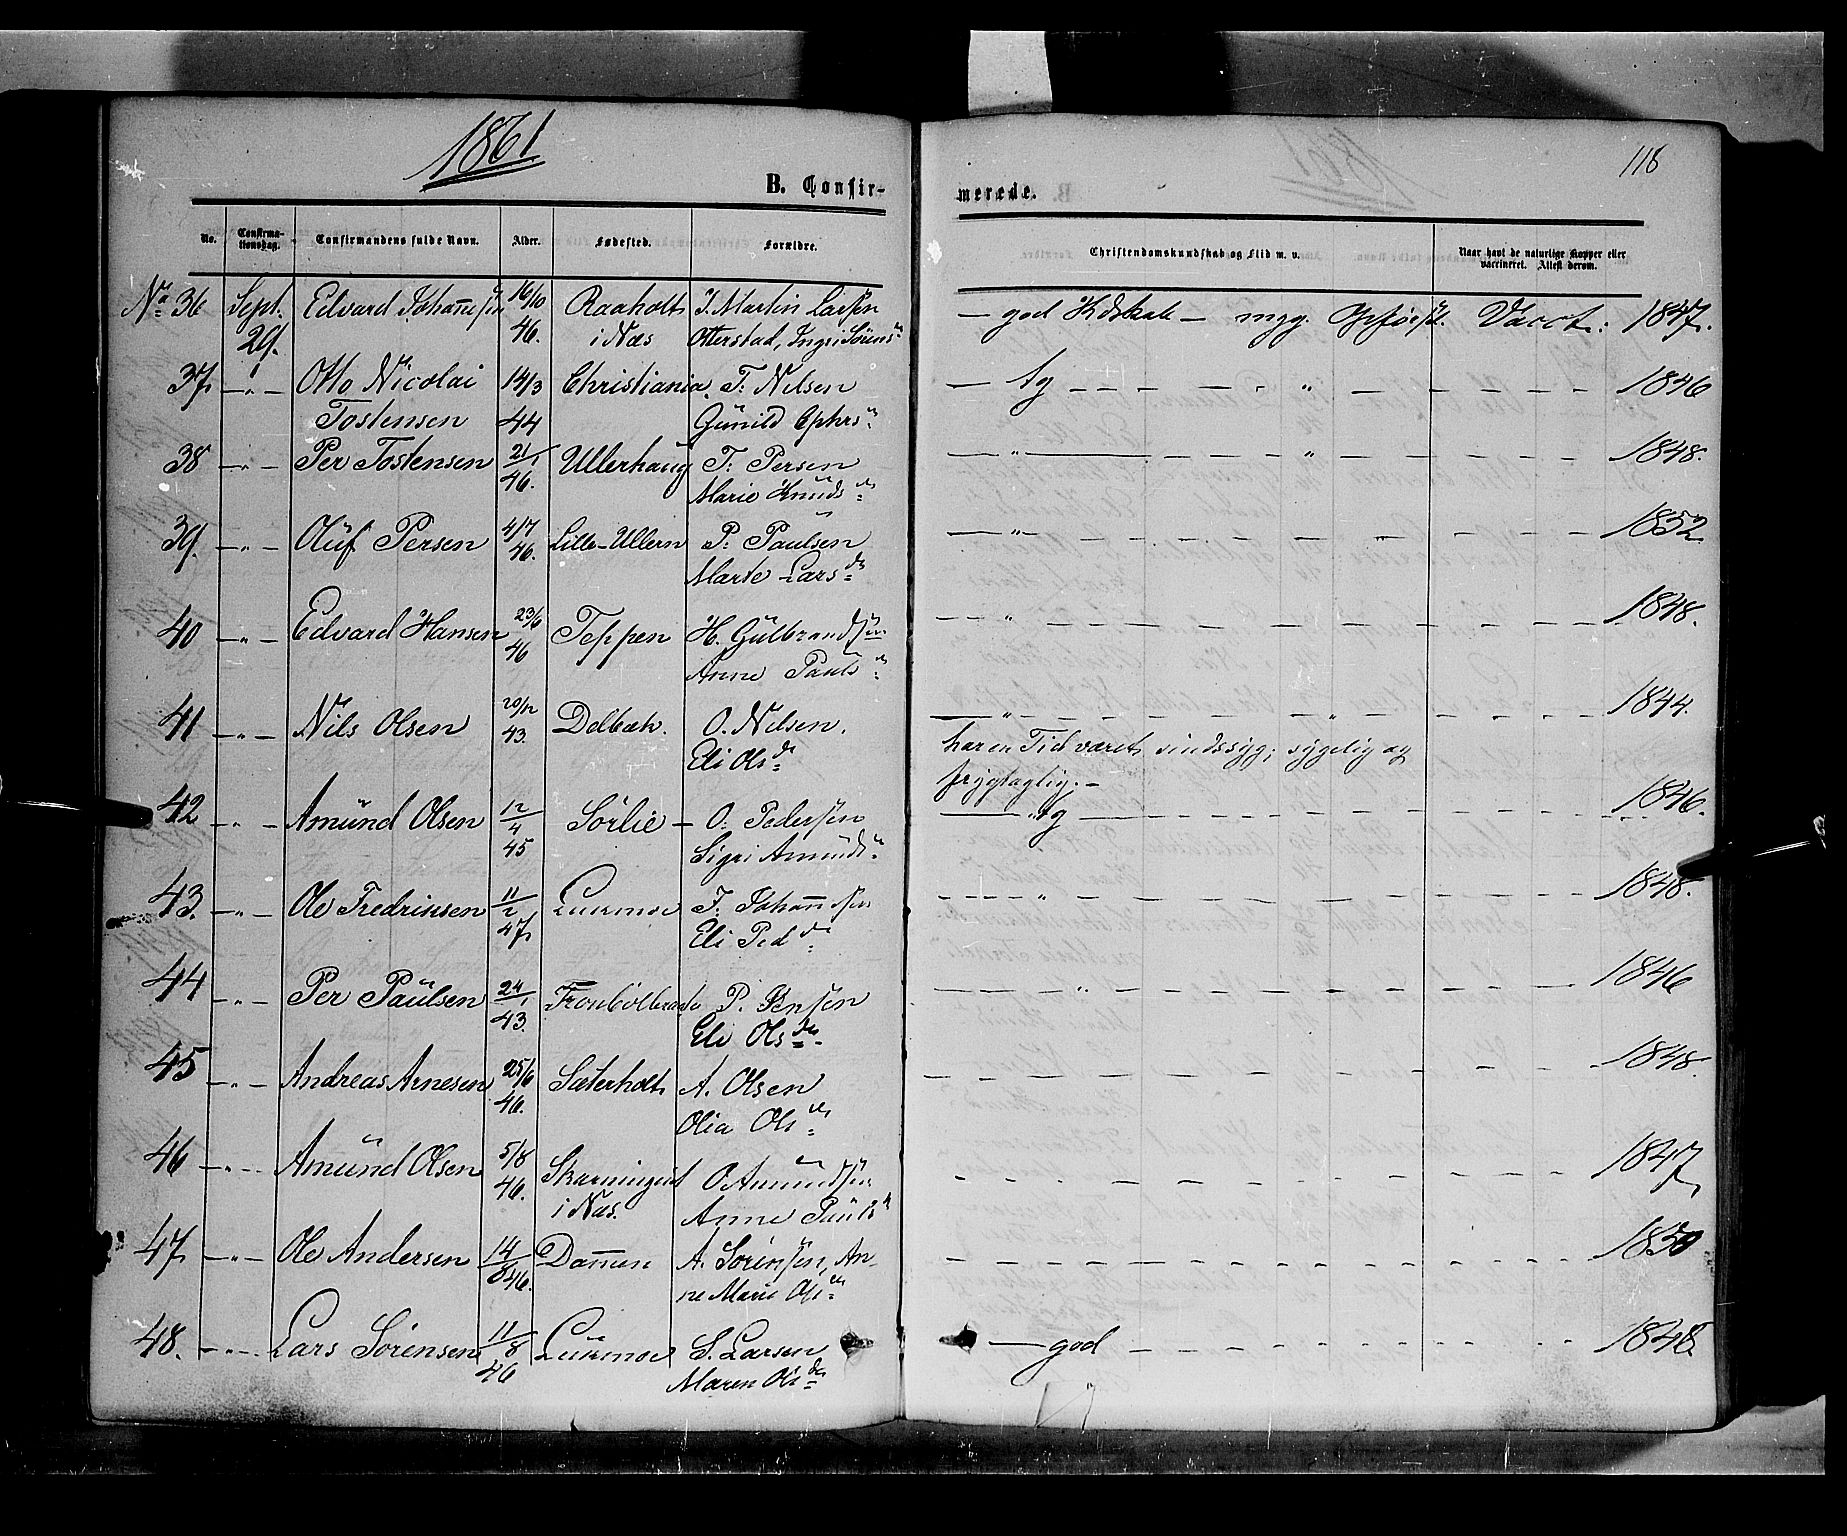 1861
118
B. Confir-
merede.
No.
Confirma-
tionsdag.
Confirmandens fulde Navn.
Alder.
Fødested.
Forældre.
Christendomskundskab og Flid m. v.
Naar havt de naturlige Kopper eller
vaccineret. Attest derom.
No 36 Sept. 29. Edvard Johannesen 16/10 46. Raaholt i Næs J. Martin Larsen — god Kdskab — mgg. Vacct: 1847.
Otterstad, Ingri Sørens
37 — " — Otto Nicolai 14/3 Christiania T: Nelsen — tg — " — 1846
Tostensen 44 Gunild
38 — " — Per Tostensen 21/1 46. Ullerhaug T: Persen — " — " — 1848.
Marie Knudsd:
39. — " — Oluf Persen 4/7 46. Lille-Ullern P: Paulsen — " — 1852.
Marte Larsd:
40 — " — Edvard Hansen 23/6 46 Teppen H. Gulbrandsen — " — 1848.
Anne Paulsd:
41 — " — Nils Olsen 20/12 43. Delbæk. O. Nelsen. — " — " — 1844.
Eli Olsd: har en Tid været sindssyg; sygelig og
frygtagtig. —
42 — " — Amund Olsen 12/4 45 Sørlie — O: Pedersen — tg — 1846.
Sigri Amunds:
43. — " — Ole Fredriksen 11/2 47 F: Johannesen — " — 1848.
Eli Pedd:
44 — " — Per Paulsen 24/1 43. P. Jensen — " — 1846
Eli Olsd:
45 — " — Andreas Arnesen 25/6 46. Sæterholt A. Olsen — 1848.
Olia Olsd:
46 — " — Amund Olsen 5/8 46. O. Amundsen — 1847.
i Næs. Anne Pauls
47 — " — Ole Andersen 14/8 46. Dammen A. Sørensen, An- — 1850
ne Marie Olsd:
48. — " — Lars Sørensen 11/8 46 S. Larsen — god — 1848.
Maren Olsd: